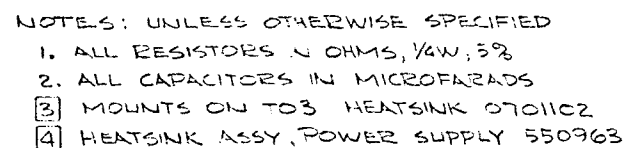 NOTES: UNLESS OTHERWISE SPECIFIED
1. ALL RESISTORS IN OHMS, 1/4W, 5%
2. ALL CAPACITORS IN MICROFARADS
3 MOUNTS ON TO3 HEATSINK 0701102
4 HEATSINK ASSY, POWER SUPPLY 550963